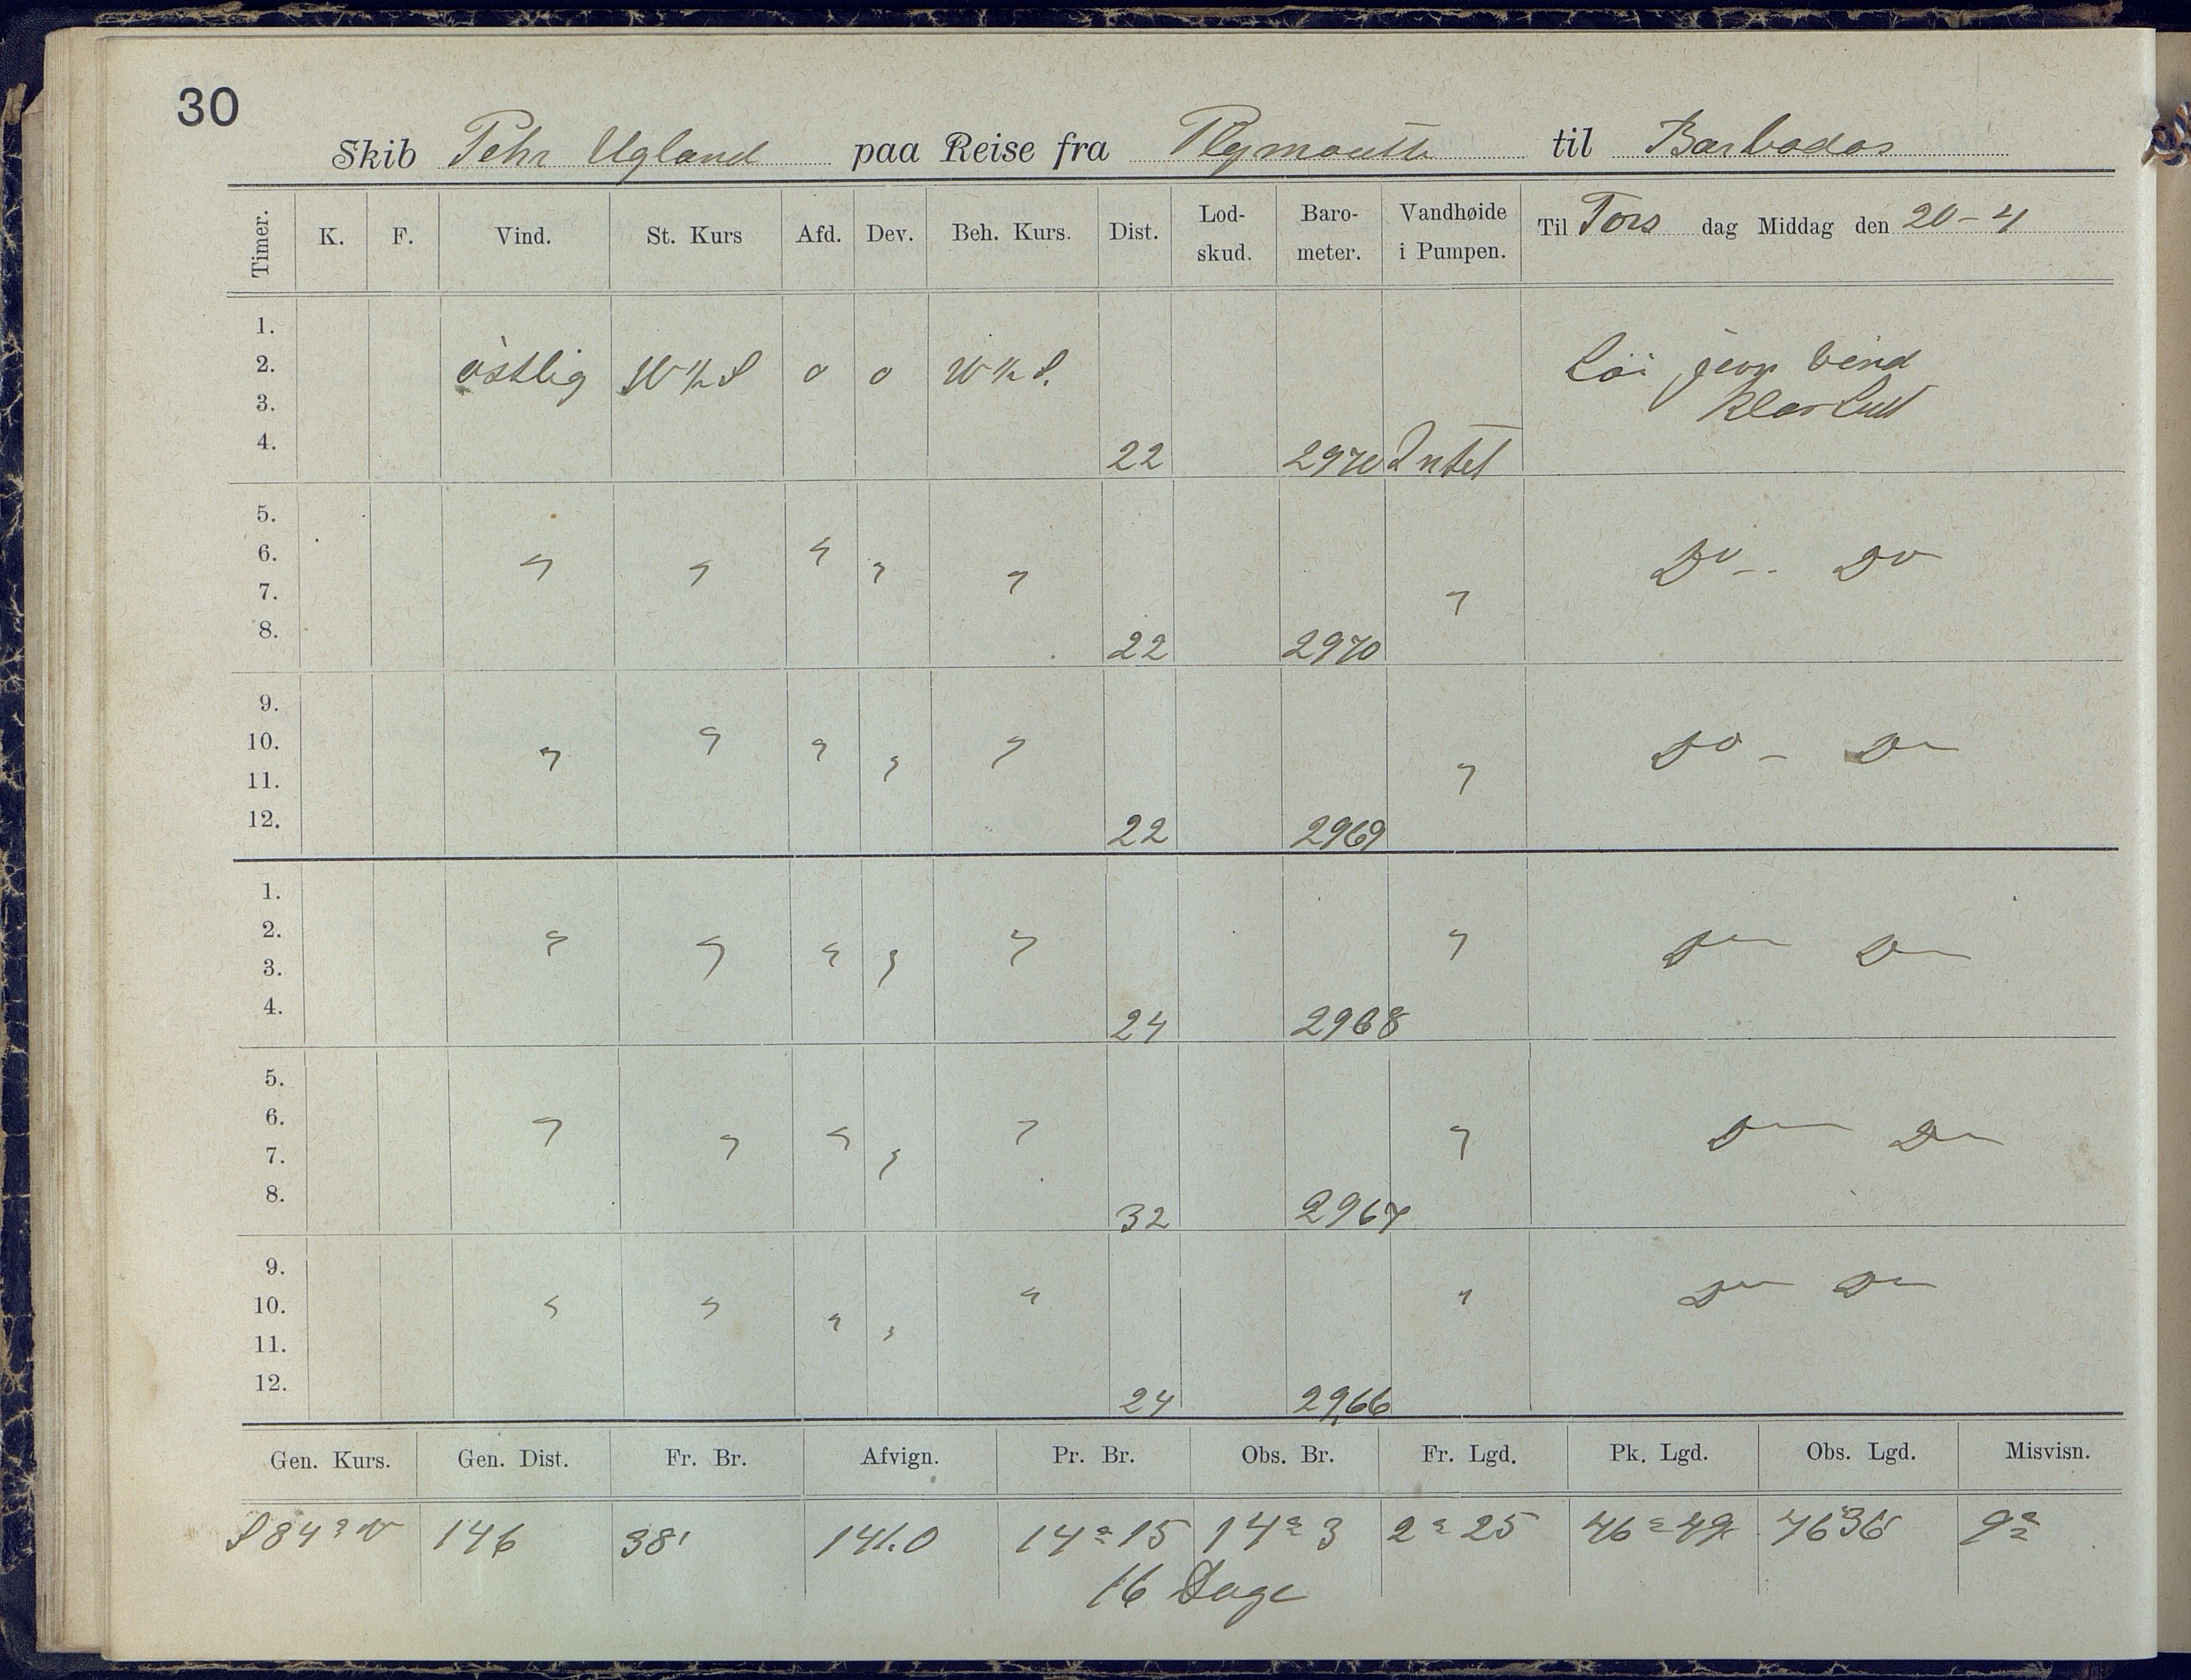 30
Skib Pehr Ugland paa Reise fra Plymouth til Barbados
Timer. K. F. Vind. St. Kurs Afd. Dev. Beh. Kurs. Dist. Lod-skud. Baro-meter. Vandhøide i Pumpen. Til Tors dag Middag den 20-4
1.
2. östlig W½S o o W½S. Löi jevn vind
3. Klar Luft
4. 22 2970 Intet
5.
6. " " " " " Do -- Do
7. "
8. 22 2970
9.
10. " " " " " Do - Do
11. "
12. 22 2969
1.
2. " " " " " " Do Do
3.
4. 24 2968
5.
6. " " " " " " Do Do
7.
8. 32 2967
9.
10. " " " " " " Do Do
11.
12. 24 2966
Gen. Kurs. Gen. Dist. Fr. Br. Afvign. Pr. Br. Obs. Br. Fr. Lgd. Pk. Lgd. Obs. Lgd. Misvisn.
S 84° W 146 38' 141.0 14° 15 14° 3 2° 25 46° 49 4636 9°
16 Dage